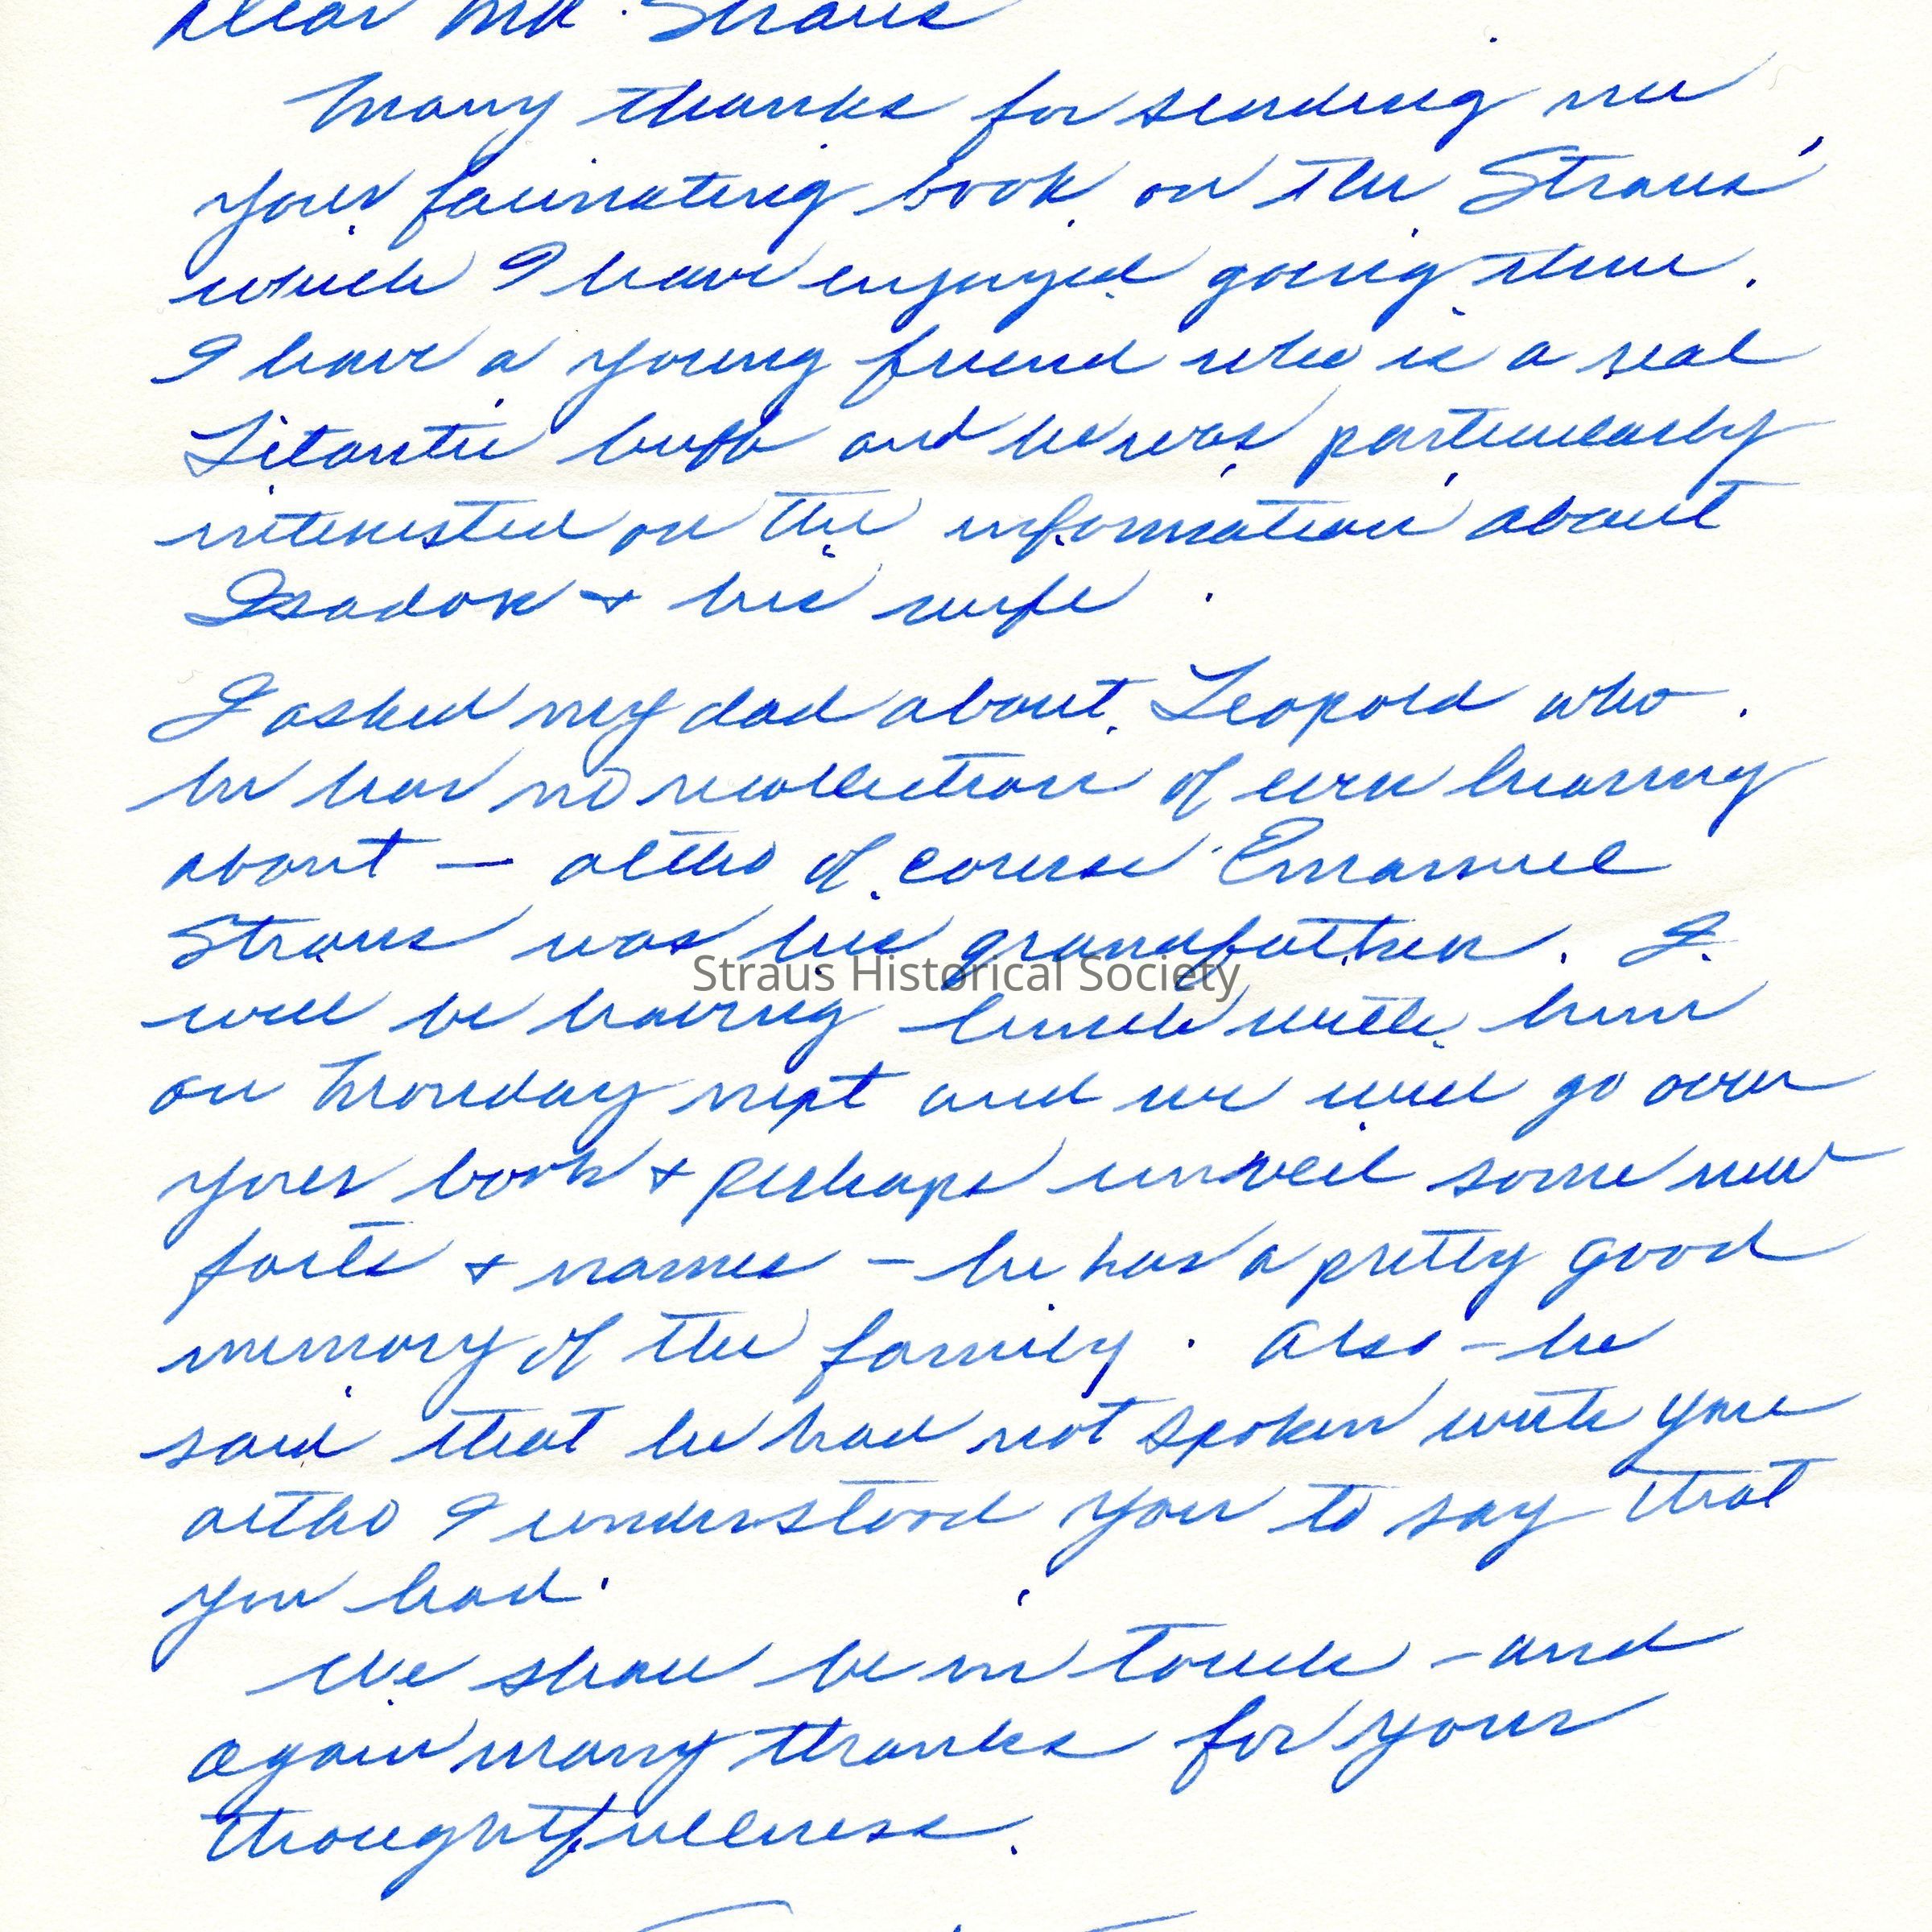 Dear Mr. Straus
Many thanks for sending me
your facinating book on the Straus'
which I have enjoyed going thru.
I have a young friend who is a real
Titantic buff and he was particularly
interested on the information about
Isador + his wife.
I asked my dad about Leopold who
he has no recollection of ever hearing
about — altho of course Emanuel
Straus was his grandfather. I
Straus Historical Society
will be having lunch with him
on Monday next and we will go over
your book + perhaps unveil some new
facts + names — he has a pretty good
memory of the family. Also — he
said that he had not spoken with you
altho I understood you to say that
you had.
We shall be in touch — and
again many thanks for your
thoughtfullness.